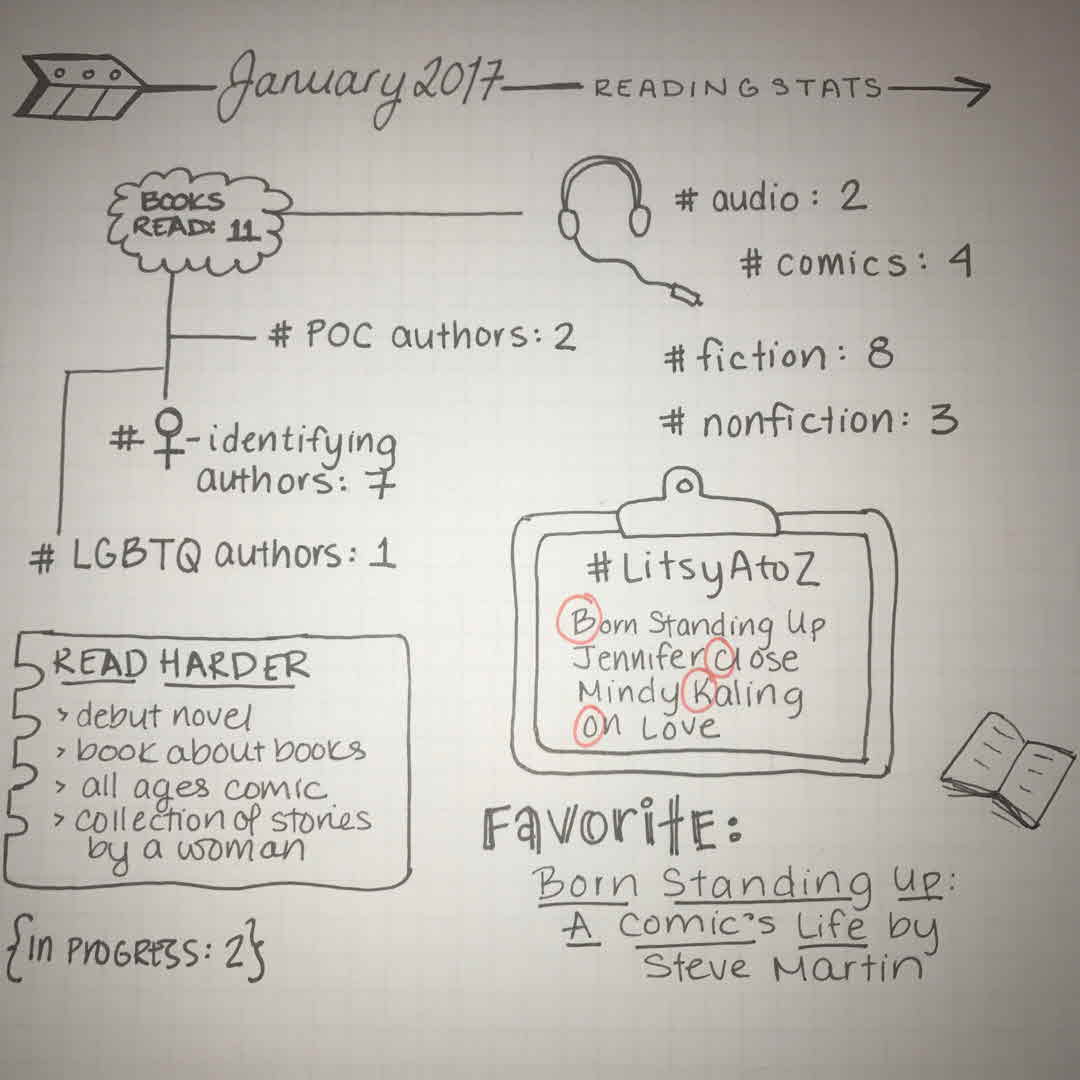 January 2017 READING STATS
BOOKS
READ: 11
# audio: 2
# comics: 4
# POC authors: 2
# fiction: 8
# nonfiction: 3
# ♀-identifying
authors: 7
# LGBTQ authors: 1
#LitsyAtoZ
Born Standing Up
Jennifer Close
Mindy Kaling
On Love
READ HARDER
> debut novel
> book about books
> all ages comic
> collection of stories
by a woman
FAVORITE:
Born Standing Up:
A Comic's Life by
Steve Martin
{IN PROGRESS: 2}